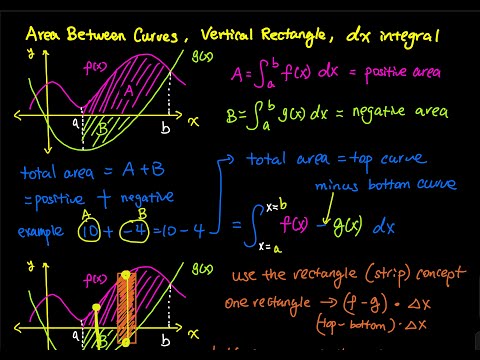 Area Between Curves, Vertical Rectangle, dx integral
y f(x) g(x)
A
B
a b x
A = ∫_a^b f(x) dx = positive area
B = ∫_a^b g(x) dx = negative area
total area = A + B
= positive + negative
A B
example 10 + -4 = 10 - 4
total area = top curve
minus bottom curve
= ∫_{x=a}^{x=b} f(x) - g(x) dx
y f(x) g(x)
a B b x
use the rectangle (strip) concept
one rectangle → (f - g) • Δx
(top - bottom) • Δx